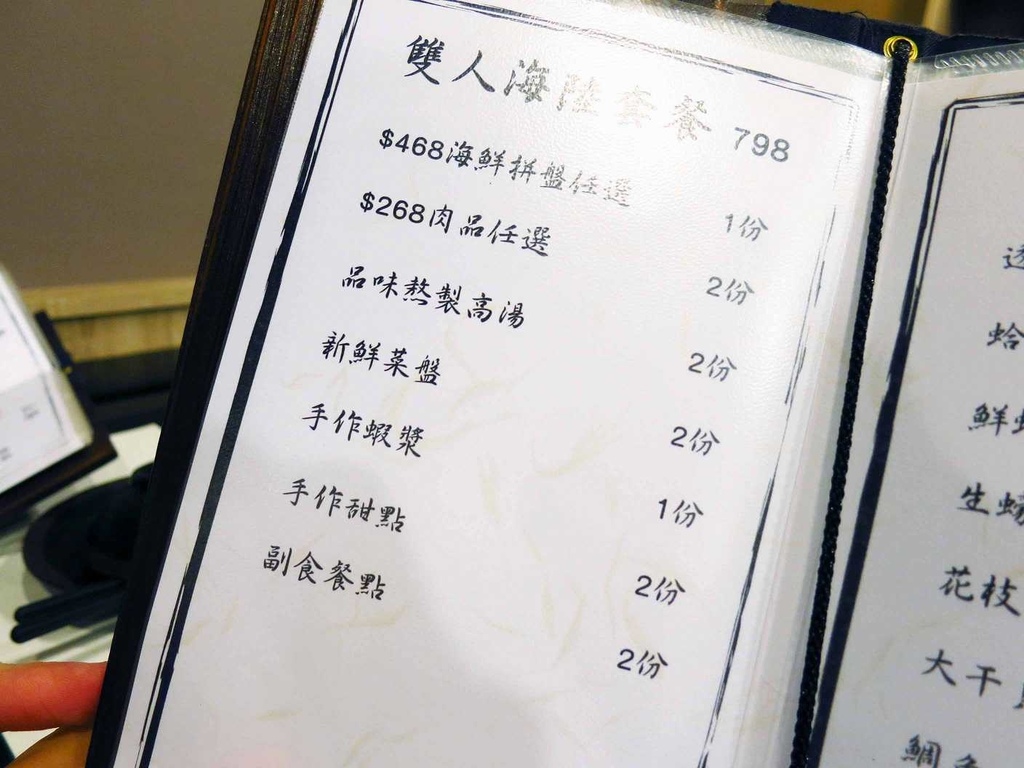 雙人海陸套餐 798
$468海鮮拼盤任選 1份
$268肉品任選 2份
品味熬製高湯 2份
新鮮菜盤 2份
手作蝦漿 1份
手作甜點 2份
副食餐點 2份
透
蛤
鮮
生蠔
花枝
大干
鯛